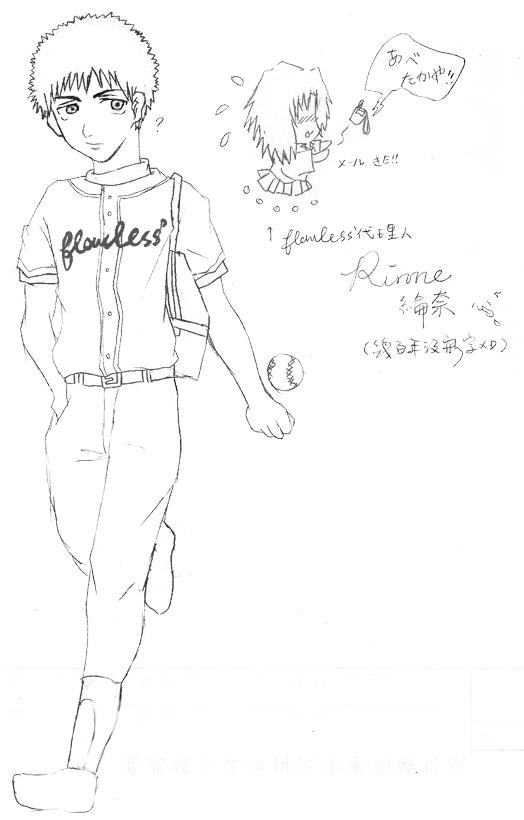 あべ
たかや!!
?
メール きた!!
flawless
↑ flawless代理人
Rinne
綸奈